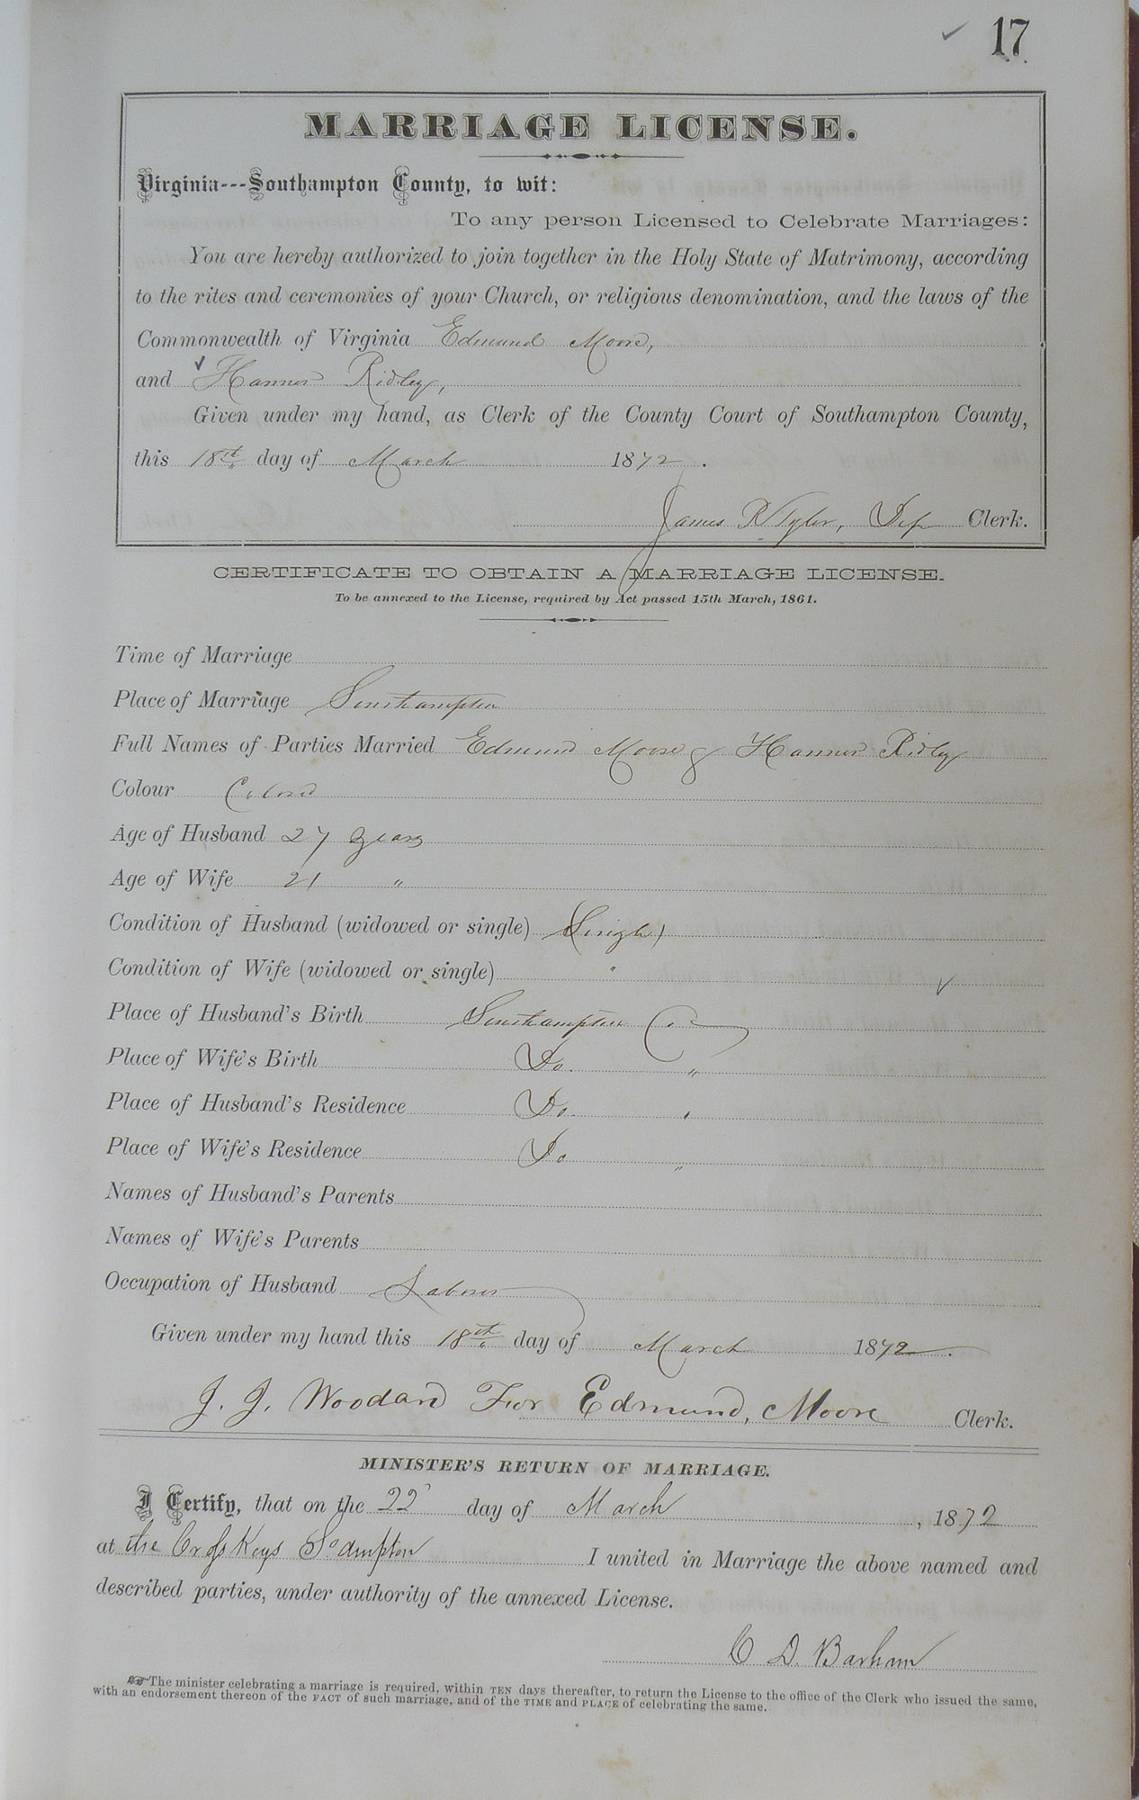 17
MARRIAGE LICENSE.
Virginia---Southampton County, to wit:
To any person Licensed to Celebrate Marriages:
You are hereby authorized to join together in the Holy State of Matrimony, according
to the rites and ceremonies of your Church, or religious denomination, and the laws of the
Commonwealth of Virginia Edmund Moore,
and Hannor Ridley,
Given under my hand, as Clerk of the County Court of Southampton County,
this 18th day of March 1872.
James R Tyler, Dep Clerk.
CERTIFICATE TO OBTAIN A MARRIAGE LICENSE.
To be annexed to the License, required by Act passed 15th March, 1861.
Time of Marriage
Place of Marriage Southampton
Full Names of Parties Married Edmund Moore & Hannor Ridley
Colour Colored
Age of Husband 27 years
Age of Wife 21 "
Condition of Husband (widowed or single) Single
Condition of Wife (widowed or single) "
Place of Husband's Birth Southampton Co
Place of Wife's Birth Do. "
Place of Husband's Residence Do. "
Place of Wife's Residence Do "
Names of Husband's Parents
Names of Wife's Parents
Occupation of Husband Laborer
Given under my hand this 18th day of March 1872.
J. J. Woodard For Edmund, Moore Clerk.
MINISTER'S RETURN OF MARRIAGE.
I Certify, that on the 22 day of March, 1872
at the Cross Keys So'ampton I united in Marriage the above named and
described parties, under authority of the annexed License.
C D. Barham
☞The minister celebrating a marriage is required, within TEN days thereafter, to return the License to the office of the Clerk who issued the same,
with an endorsement thereon of the FACT of such marriage, and of the TIME and PLACE of celebrating the same.